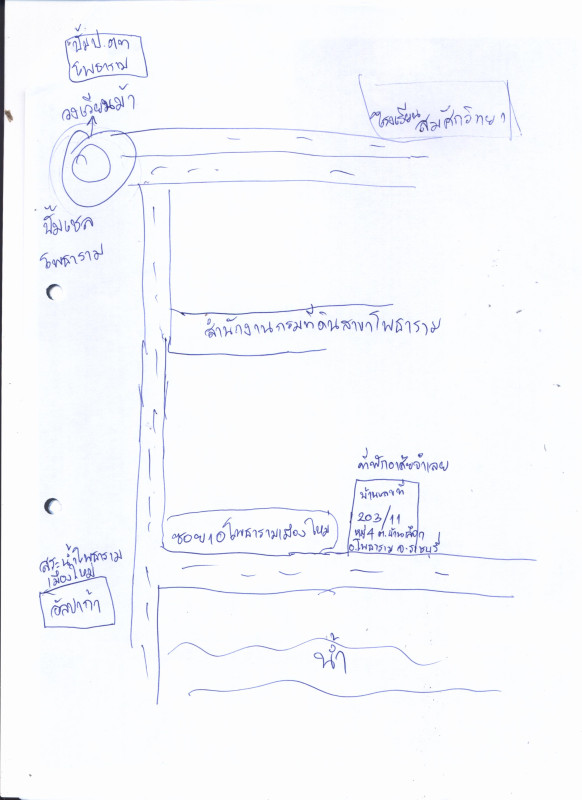 ปั๊มป.ตท
โพธาราม
วงเวียนม้า
โรงเรียนสมัศกวิทยา
ปั๊มเชล
โพธาราม
สำนักงานกรมที่ดินสาขาโพธาราม
ที่พักอาศัยจำเลย
บ้านเลขที่
203/11
หมู่4 ต.บ้านเลือก
อ.โพธาราม จ.ราชบุรี
ซอย10โพธารามเมืองใหม่
สระน้ำโพธาราม
เมืองใหม่
อัลปาก้า
น้ำ